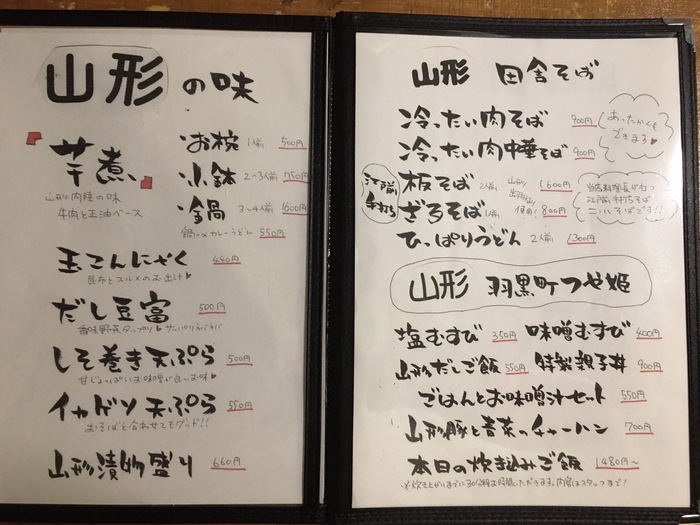 山形の味
芋煮
山形内陸の味
牛肉と正油ベース
・お椀 1人前 500円
・小鉢 2〜3人前 750円
・鍋 3〜4人前 1600円
鍋〆カレーうどん 550円
玉こんにゃく 440円
昆布とスルメのお出汁♥
だし豆富 500円
香味野菜タップリ♥
しそ巻き天ぷら 500円
甘じょっぱいお味噌が良いお味♥
イカゲソ天ぷら 550円
おそばと合わせてもグッド!!
山形漬物盛り 660円
山形 田舎そば
冷ったい肉そば 900円
冷ったい肉中華そば 900円
あったかくもできます♥
江戸前手打ち
板そば 2人前 1600円
ざるそば 1人前 800円
山形
当店料理長が打つ
江戸前手打そば
ひっぱりうどん 2人前 1300円
山形 羽黒町つや姫
塩むすび 350円 味噌むすび 400円
山形だしご飯 550円 特製親子丼 900円
ごはんとお味噌汁セット 550円
山形豚と青菜のチャーハン 700円
本日の炊き込みご飯 1480円〜
※炊き上がりまでに30分程お時間いただきます。内容はスタッフまで!